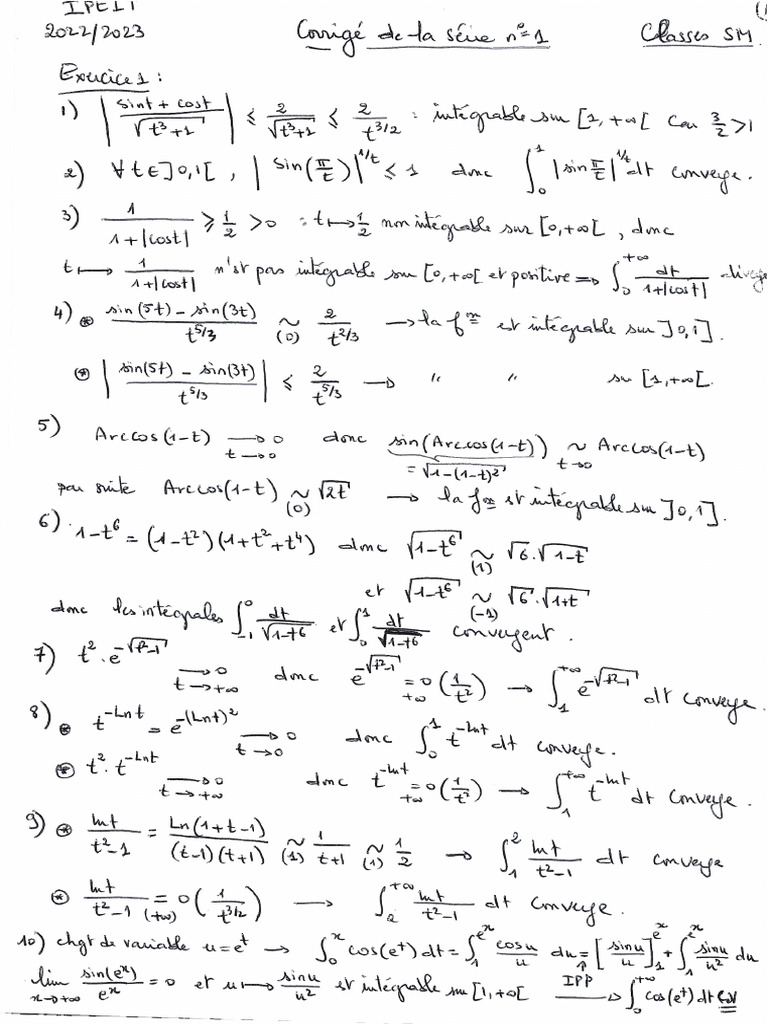 IPEIT (1
2022/2023 Corrigé de la série n°=1 Classes SM
Exercice 1 :
1) |(sint + cost)/√(t³+1)| ≤ 2/√(t³+1) ≤ 2/t^(3/2) : intégrable sur [1, +∞[ car 3/2 > 1
2) ∀ t ∈ ]0,1[ , |sin(π/t)|^(1/t) ≤ 1 donc ∫_0^1 |sin π/t|^(1/t) dt converge.
3) 1/(1+|cost|) ≥ 1/2 > 0 : t ↦ 1/2 non intégrable sur [0,+∞[ , donc
t ↦ 1/(1+|cost|) n'est pas intégrable sur [0,+∞[ et positive ⟹ ∫_0^(+∞) dt/(1+|cost|) diverge
4) ⊛ (sin(5t) − sin(3t))/t^(5/3) ~_(0) 2/t^(2/3) → la f^m est intégrable sur ]0,1].
⊛ |(sin(5t) − sin(3t))/t^(5/3)| ≤ 2/t^(5/3) → " " sur [1,+∞[.
5) Arccos(1−t) →_(t→0) 0 donc sin(Arccos(1−t)) ~_(t→0) Arccos(1−t)
= √(1−(1−t)²)
par suite Arccos(1−t) ~_(0) √(2t) → la f^m est intégrable sur ]0,1].
6) . 1−t⁶ = (1−t²)(1+t²+t⁴) donc √(1−t⁶) ~_(1) √6.√(1−t)
et √(1−t⁶) ~_(−1) √6.√(1+t)
donc les intégrales ∫_(−1)^0 dt/√(1−t⁶) et ∫_0^1 dt/√(1−t⁶) convergent.
7) t².e^(−√(t²−1)) →_(t→+∞) 0 donc e^(−√(t²−1)) =_(+∞) o(1/t²) → ∫_1^(+∞) e^(−√(t²−1)) dt converge.
8) ⊛ t^(−Lnt) = e^(−(Lnt)²) →_(t→0) 0 donc ∫_0^1 t^(−lnt) dt converge.
⊛ t².t^(−Lnt) →_(t→+∞) 0 donc t^(−lnt) =_(+∞) o(1/t²) → ∫_1^(+∞) t^(−lnt) dt converge.
9) ⊛ lnt/(t²−1) = Ln(1+t−1)/((t−1)(t+1)) ~_(1) 1/(t+1) ~_(1) 1/2 → ∫_1^2 lnt/(t²−1) dt converge
⊛ lnt/(t²−1) =_(+∞) o(1/t^(3/2)) → ∫_2^(+∞) lnt/(t²−1) dt converge.
10) chgt de variable u=e^t → ∫_0^x cos(e^t) dt = ∫_1^(e^x) cosu/u du = [sinu/u]_1^(e^x) + ∫_1^(e^x) sinu/u² du
↑ IPP
lim_(x→+∞) sin(e^x)/e^x = 0 et u ↦ sinu/u² est intégrable sur [1,+∞[ → ∫_0^(+∞) cos(e^t) dt CV